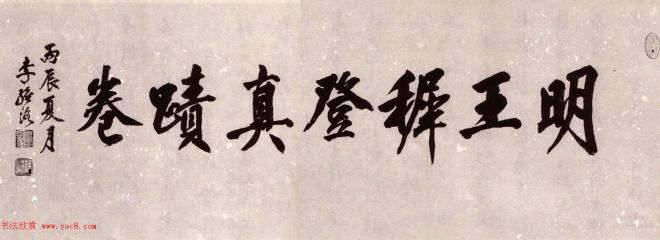 明王穉登真蹟卷
丙辰夏月
李
书法欣赏 www.yac8.com